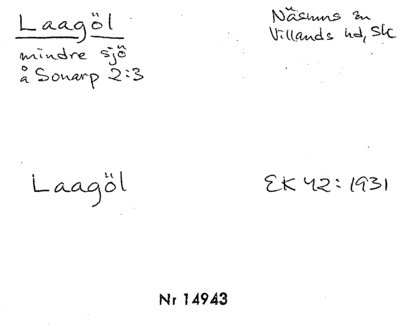 Laagöl
mindre sjö
å Sonarp 2:3
Näsums sn
Villands hd, Sk
Laagöl
EK 42: 1931
Nr 14943